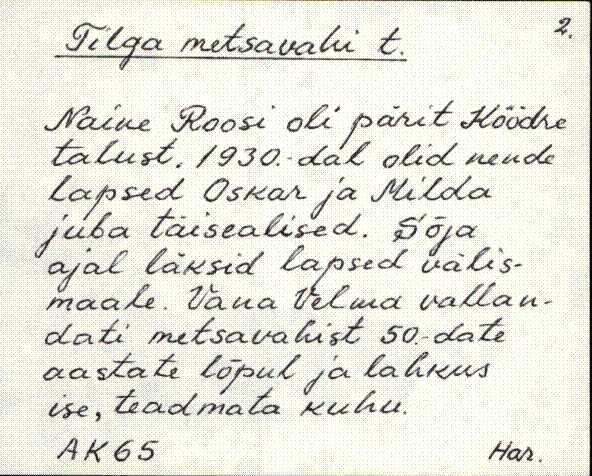 Tilga metsavahi t. 2.
Naine Roosi oli pärit Köödre
talust. 1930.-dal olid nende
lapsed Oskar ja Milda
juba täisealised. Sõja
ajal läksid lapsed välis-
maale. Vana Velma vallan-
dati metsavahist 50.-date
aastate lõpul ja lahkus
ise, teadmata kuhu.
AK65 Har.